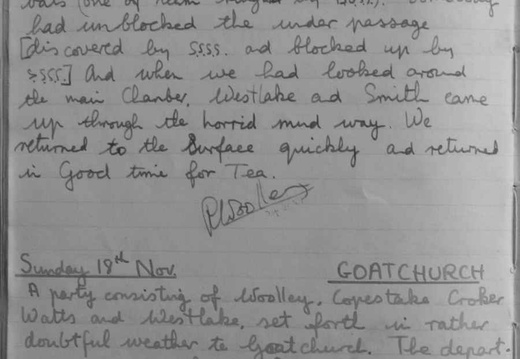 had unblocked the under passage
[discovered by S.S.S.S. ad blocked up by
S.S.S.S.] And when we had looked around
the main Chamber, Westlake and Smith came
up through the horrid mud way. We
returned to the Surface quickly and returned
in Good time for Tea.
P Woolley
Sunday 18th Nov. GOATCHURCH
A party consisting of Woolley, Copestake Croker
Watts and Westlake, set forth in rather
doubtful weather to Goatchurch. The depart-